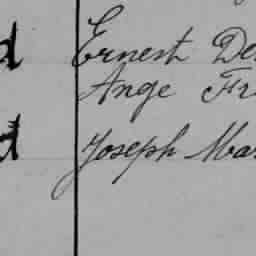 d Ernest De
Ange Fr
d Joseph Ma